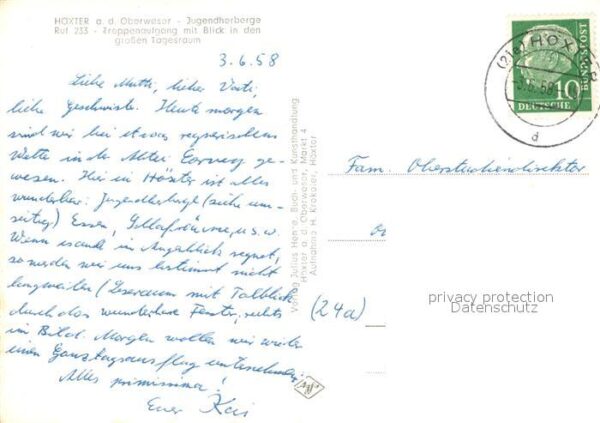 HÖXTER a. d. Oberweser - Jugendherberge
Ruf 233 - Treppenaufgang mit Blick in den
großen Tagesraum
3.6.58
Liebe Mutti, lieber Vati,
liebe Geschwister. Heute morgen
sind wir bei etwas regnerischem
Wetter in der Abtei Corvey ge-
wesen. Hier in Höxter ist alles
wunderbar: Jugendherberge (siehe um-
seitig) Essen, Schlafräume, u. s. w.
Wenn es auch im Augenblick regnet,
so werden wir uns bestimmt nicht
langweilen (Leseraum mit Talblick
durch das wunderbare Fenster, rechts
im Bild. Morgen wollen wir wieder
einen Ganztagsausflug unternehmen.
Alles primissima!
Euer Kai
Verlag Julius Henze, Buch- und Kunsthandlung
Höxter a. d. Oberweser, Markt 4
Aufnahme H. Krekeler, Höxter
(21a) HÖXTER
58
d
10
DEUTSCHE
BUNDESPOST
Fam. Oberstudiendirektor
(24a)
privacy protection
Datenschutz